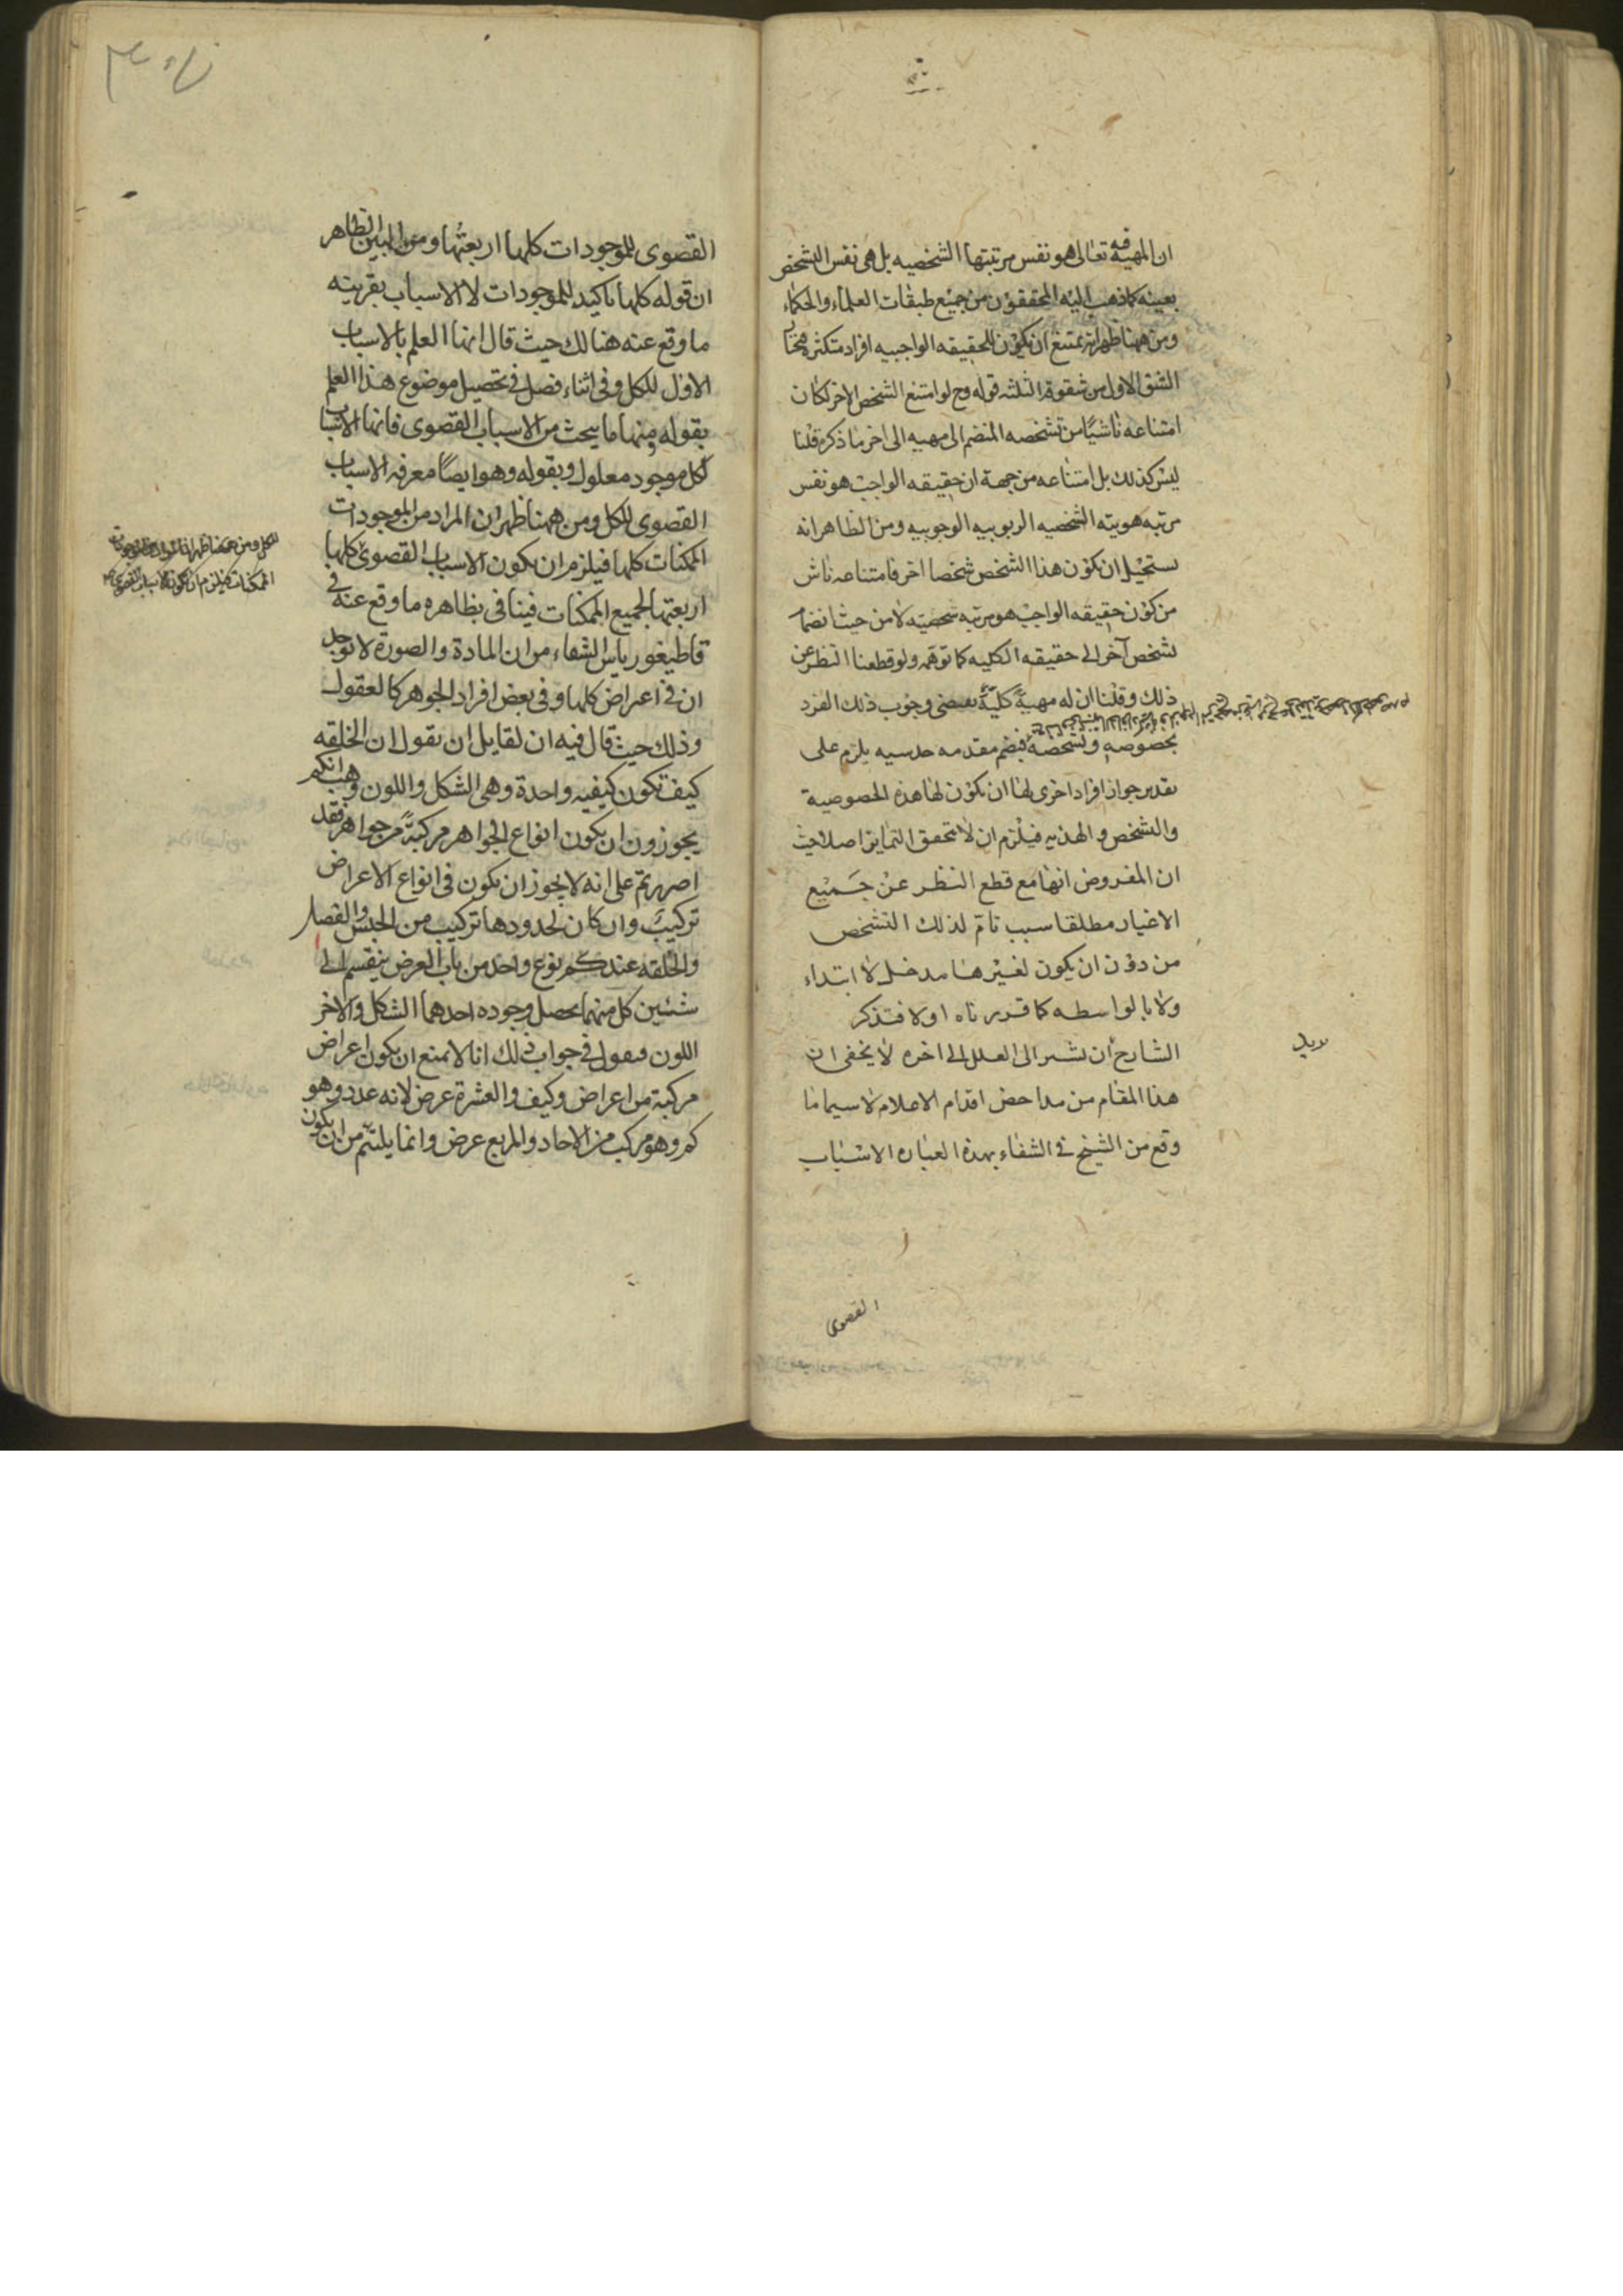 ان المهية فيه تعالى هو نفس مرتبتها الشخصيه بل هى نفس الشخص
بعينه كما ذهب اليه المحققون من جميع طبقات العلماء والحكماء
ومن ههنا ظهر انه يمتنع ان يكون للحقيقه الواجبيه افراد متكثره فختار
الشق الاول من شقوقه الثلثه قوله وح لو امتنع الشخص الاخر لكان
امتناعه ناشيًا من تشخصه المنضم الى مهيه الى اخر ما ذكره قلنا
ليس كذلك بل امتناعه من جهة ان حقيقه الواجب هو نفس
مرتبه هويته الشخصيه الربوبيه الوجوبيه ومن الظاهر انه
يستحيل ان يكون هذا الشخص شخصا اخر فامتناعه ناش
من كون حقيقه الواجب هو مرتبه شخصيته لا من حيث انضمام
لشخص آخر الى حقيقه الكليه كما توهّم ولو قطعنا النظر عن
ذلك وقلنا ان له مهيةً كليّةً يقتضى وجوب ذلك الفرد
بخصوصه وتشخصه فبضم مقدمه حدسيه يلزم على
تقدير جواز افراد اخرى لها ان يكون لها هذه الخصوصية
والشخص والهذيه فيلزم ان لا يتحقق التمايز اصلا حيث
ان المفروض انها مع قطع النظر عن جميع
الاغيار مطلقا سبب تام لذلك التشخص
من دون ان يكون لغيرها مدخل لا ابتداء
ولا بالواسطه كما قررناه اولا فتذكر
الشارح ان تشير الى العلل الى اخره لا يخفى ان
هذا المقام من مداحض اقدام الاعلام لا سيما ما
وقع من الشيخ فى الشفاء بهذه العباره الاسباب
القصوى
القصوى للموجودات كلها اربعتُها ومن البين الظاهر
ان قوله كلها تاكيد للموجودات لا الاسباب بقرينه
ما وقع عنه هنالك حيث قال انها العلم بالاسباب
الاول للكل وفى اثناء فصل فى تحصيل موضوع هذا العلم
بقوله ومنها ما يبحث من الاسباب القصوى فانها الاسباب
لكل موجود معلول وبقوله وهو ايضًا معرفه الاسباب
القصوى للكل ومن ههنا ظهر ان المراد من الموجودات
الممكنات كلها فيلزم ان يكون الاسباب القصوى كلها
اربعتها لجميع الممكنات فينافى بظاهره ما وقع عنه فى
قاطيغورياس الشفاء من ان المادة والصورة لا توجد
ان فى اعراض كلها وفى بعض افراد الجوهر كالعقول
وذلك حيث قال فيه ان لقايل ان يقول ان الخلقه
كيف تكون كيفيه واحدة وهى الشكل واللون وهب انكم
يجوزون ان يكون انواع الجواهر مركبةً من جواهر فقد
اصررتم على انه لا يجوز ان يكون فى انواع الاعراض
تركيب وان كان لحدودها تركيب من الجنس والفصل
والخلقه عندكم نوع واحد من باب العرض ينقسم الى
شيئين كل منهما يحصل وجوده احدهما الشكل والاخر
اللون فنقول فى جواب ذلك انا لا نمنع ان يكون اعراض
مركبة من اعراض وكيف والعشرة عرض لانه عدد وهو
كم وهو مركب من الاحاد والمربع عرض وانما يلتئم من ان يكون
للكل ومن ههنا ظهر ان المراد من الموجودات
الممكنات كلها فيلزم ان يكون الاسباب القصوى